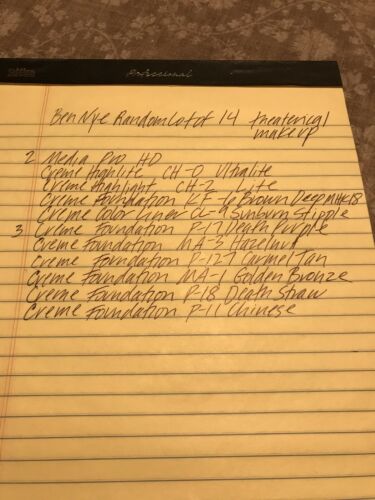 Professional
Ben Nye Random Lot of 14 theaterical
makeup
2 Media Pro HD
Creme Highlite CH-0 Ultralite
Creme Highlight CH-2 Lite
Creme Foundation KF-6 Brown Deep MHK18
Creme Color Liner CL-9 Sunburn Stipple
3 Creme Foundation P-17 Death Purple
Creme Foundation MA-3 Hazelnut
Creme Foundation P-127 Carmel Tan
Creme Foundation MA-1 Golden Bronze
Creme Foundation P-18 Death Straw
Creme Foundation P-11 Chinese